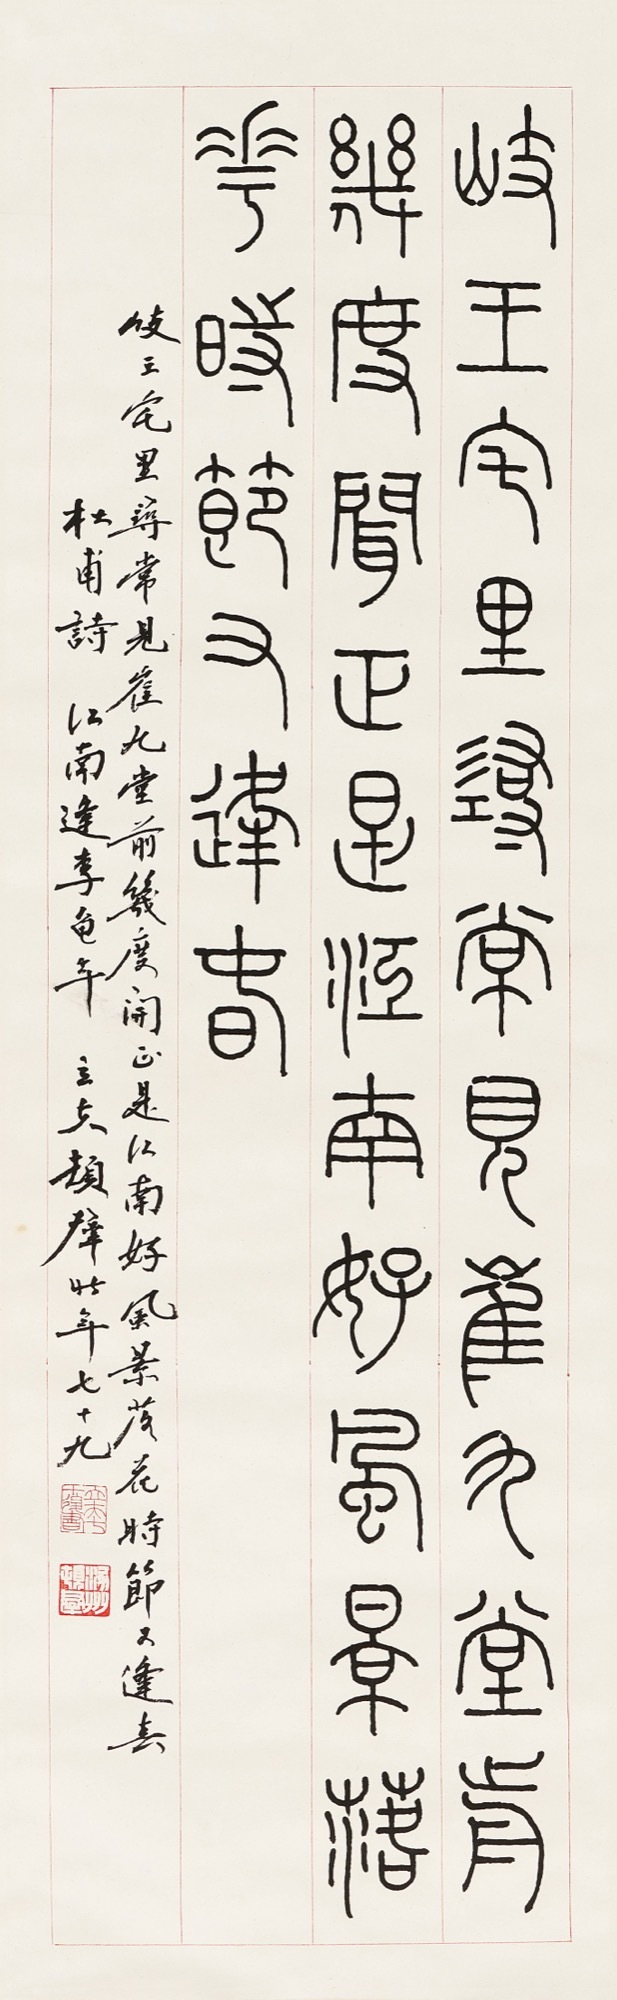 岐王宅里尋常見崔九堂前
幾度聞正是江南好風景落
花時節又逢春
岐王宅里尋常見崔九堂前幾度聞正是江南好風景落花時節又逢春
杜甫詩 江南逢李龟年 立夫 頓群 時年七十九